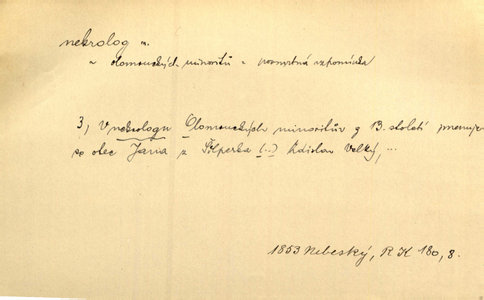 nekrolog m.
~ olomouckých minoritů = posmrtná vzpomínka
3, V nekrologu Olomouckých minoritův z 13. století jmenuje
se otec Jana z Šilperka (...) Zdislav Velký, ...
1853 Nebeský, R K 180, 8.